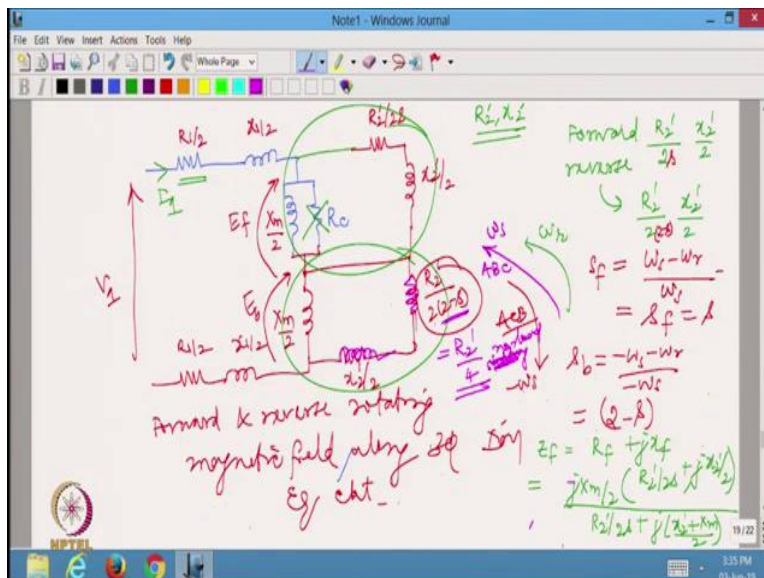 Note1 - Windows Journal
File Edit View Insert Actions Tools Help
Whole Page
B I
R1/2 x1/2 R2'/2s R2', x2'
Forward R2'/2s x2'/2
reverse
R2'/2(2-s) x2'/2
I1
x2'/2
Ef Xm/2 Rc
ωs ωr
ABC
V1
Eb Xm/2
R2'/2(2-s)
ACB
-ωs
= R2'/4
x2'/2
R1/2 x1/2
sf = (ωs - ωr)/ωs
= sf = s
sb = (-ωs - ωr)/-ωs
= (2-s)
Forward & reverse rotating
magnetic field along 3φ
Eq ckt
Zf = Rf + jxf
= jXm/2 (R2'/2s + jx2'/2)
R2'/2s + j(x2' + Xm)/2
NPTEL
19/22
3:35 PM